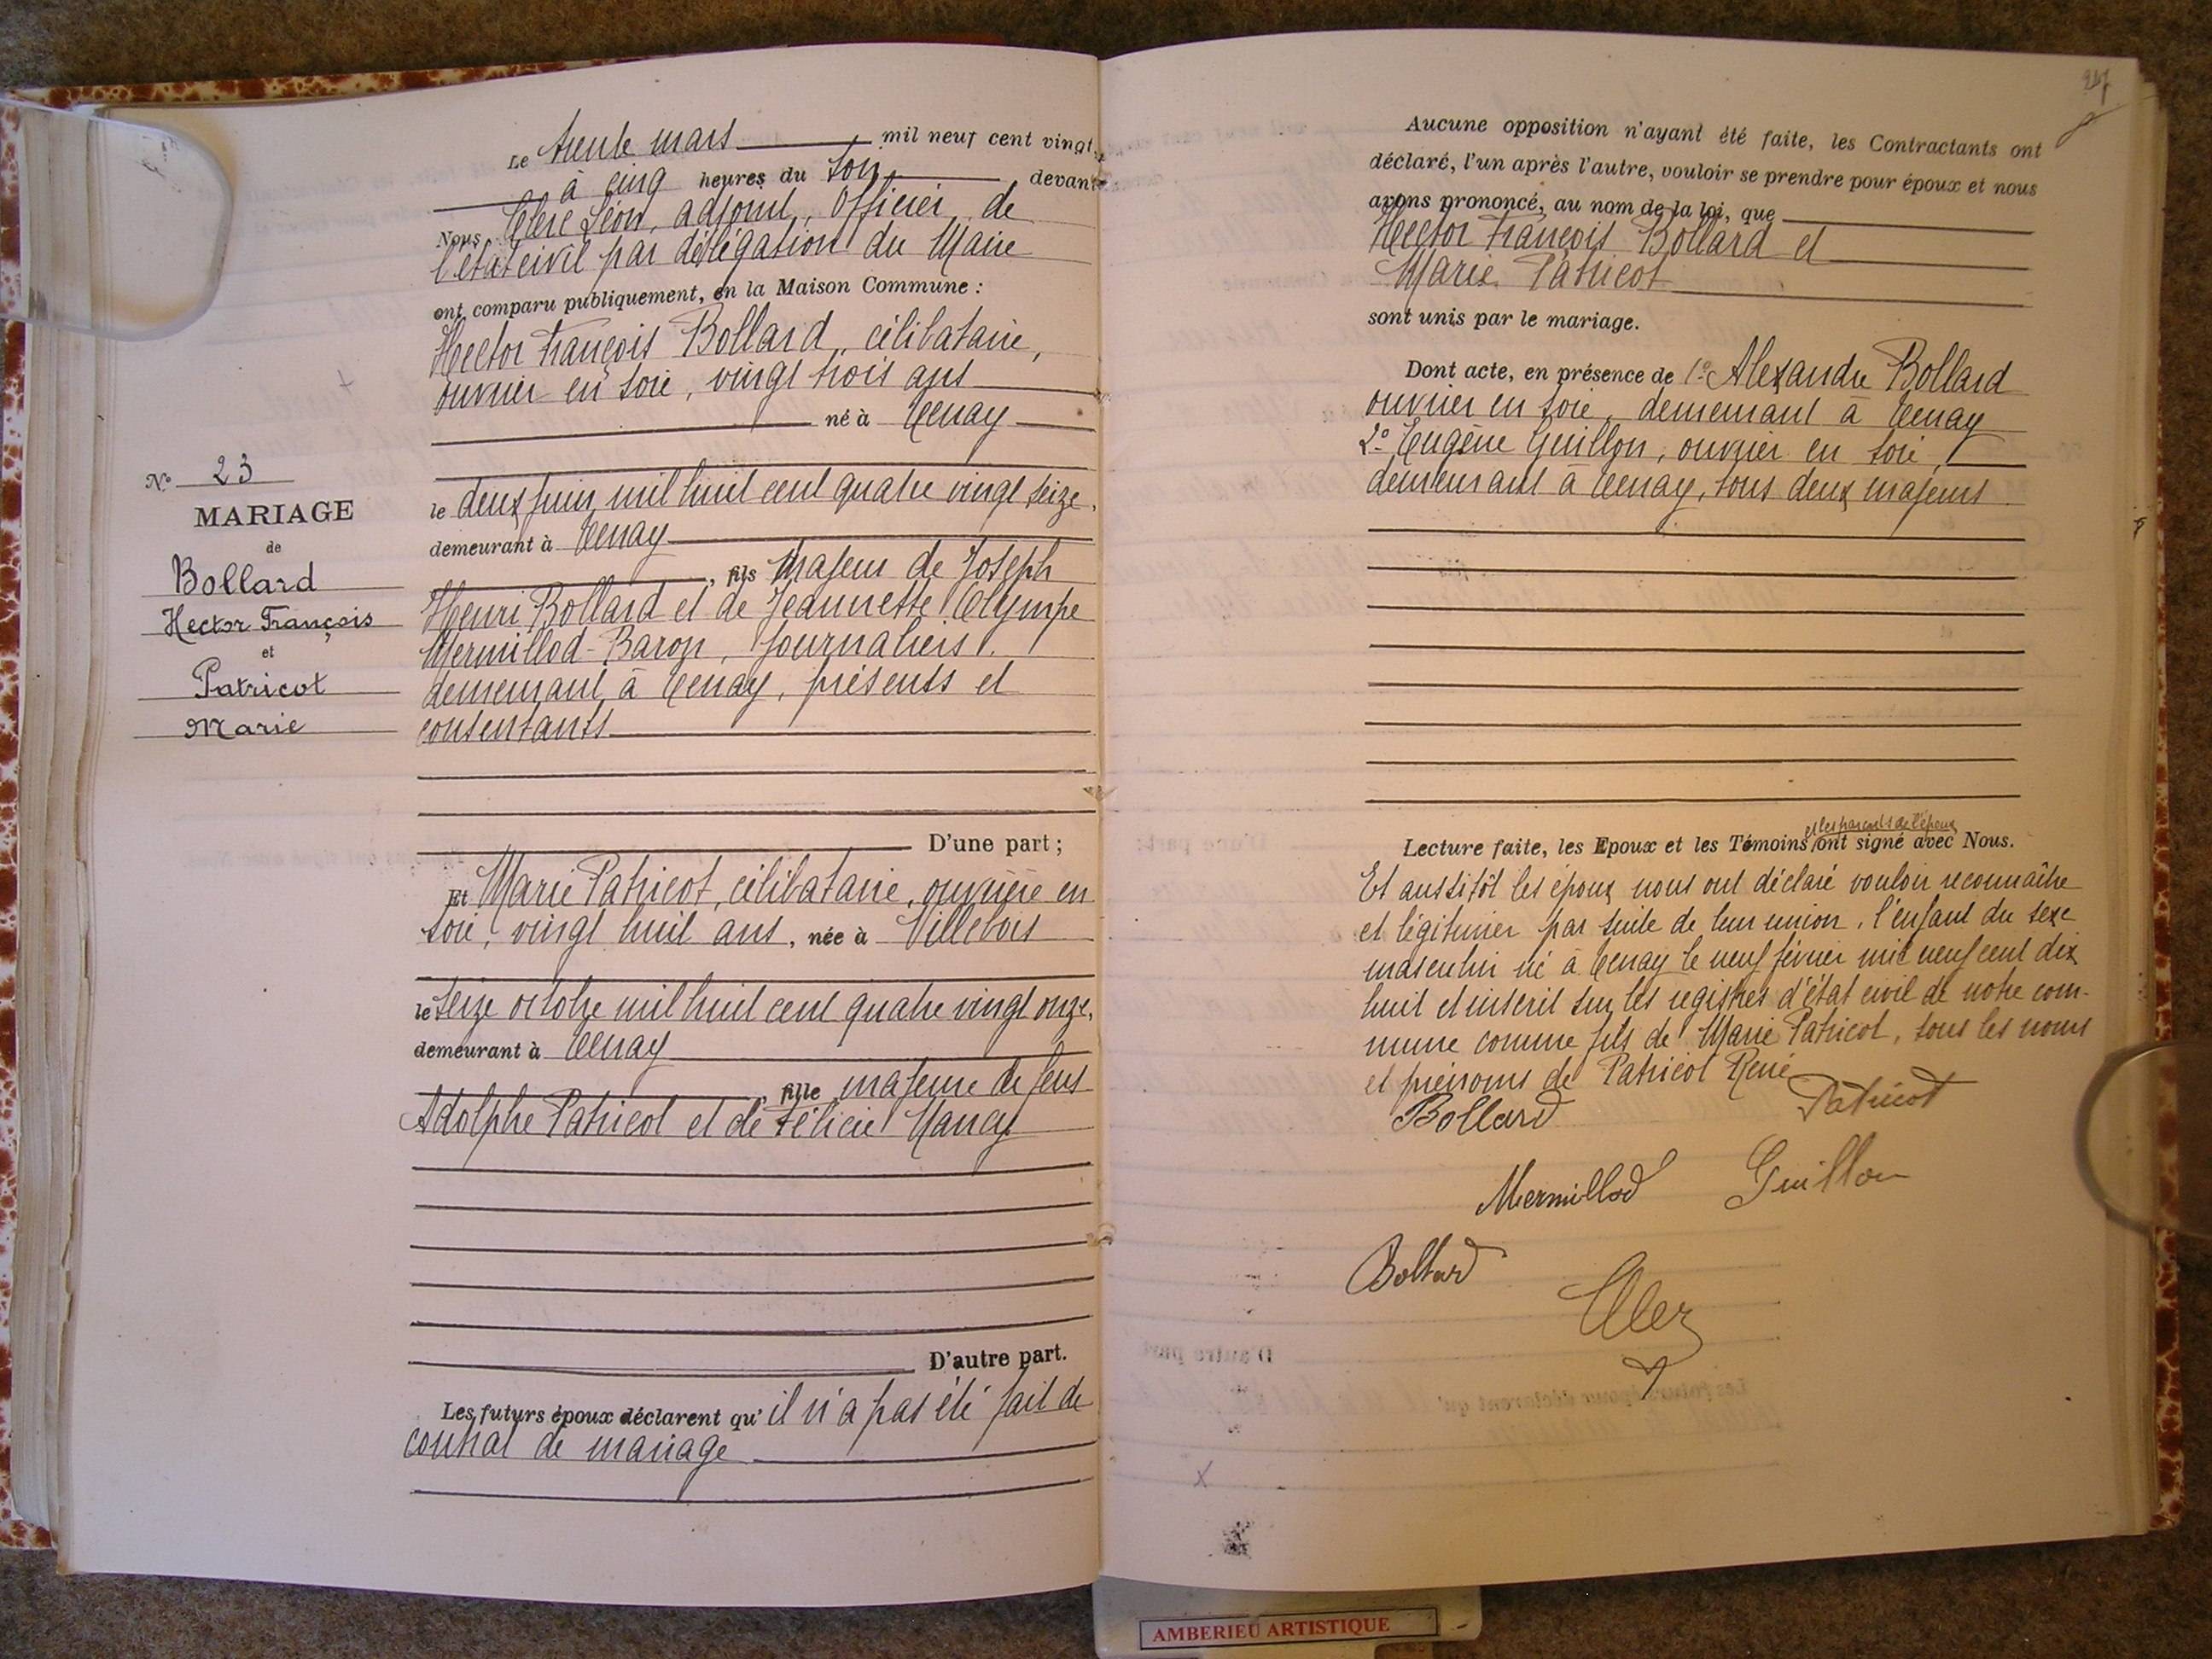 Le trente mars mil neuf cent vingt,
à cinq heures du soir devant
Nous Clerc Léon, adjoint, Officier de
l'état civil par délégation du Maire
ont comparu publiquement, en la Maison Commune :
Hector François Bollard, célibataire,
ouvrier en soie, vingt trois ans
né à Tenay
le deux juin mil huit cent quatre vingt seize,
demeurant à Tenay
, fils majeur de Joseph
Henri Bollard et de Jeannette Olympe
Mermillod-Baron, journaliers,
demeurant à Tenay, présents et
consentants
D'une part ;
Et Marie Patricot, célibataire, ouvrière en
soie, vingt huit ans, née à Villebois
le seize octobre mil huit cent quatre vingt onze,
demeurant à Tenay
, fille majeure de feus
Adolphe Patricot et de Félicie Nancy
D'autre part.
Les futurs époux déclarent qu'il n'a pas été fait de
contrat de mariage
No 23
MARIAGE
de
Bollard
Hector François
et
Patricot
Marie
Aucune opposition n'ayant été faite, les Contractants ont
déclaré, l'un après l'autre, vouloir se prendre pour époux et nous
avons prononcé, au nom de la loi, que
Hector François Bollard et
Marie Patricot
sont unis par le mariage.
Dont acte, en présence de 1° Alexandre Bollard
ouvrier en soie, demeurant à Tenay
2° Eugène Guillon, ouvrier en soie,
demeurant à Tenay, tous deux majeurs
et les parents de l'époux
Lecture faite, les Epoux et les Témoins ont signé avec Nous.
Et aussitôt les époux nous ont déclaré vouloir reconnaître
et légitimer par suite de leur union, l'enfant du sexe
masculin né à Tenay le neuf février mil neuf cent dix
huit et inscrit sur les registres d'état civil de notre com-
mune comme fils de Marie Patricot, sous les noms
et prénoms de Patricot René
Bollard Patricot
Mermillod Guillon
Bollard
Clerc
AMBERIEU ARTISTIQUE